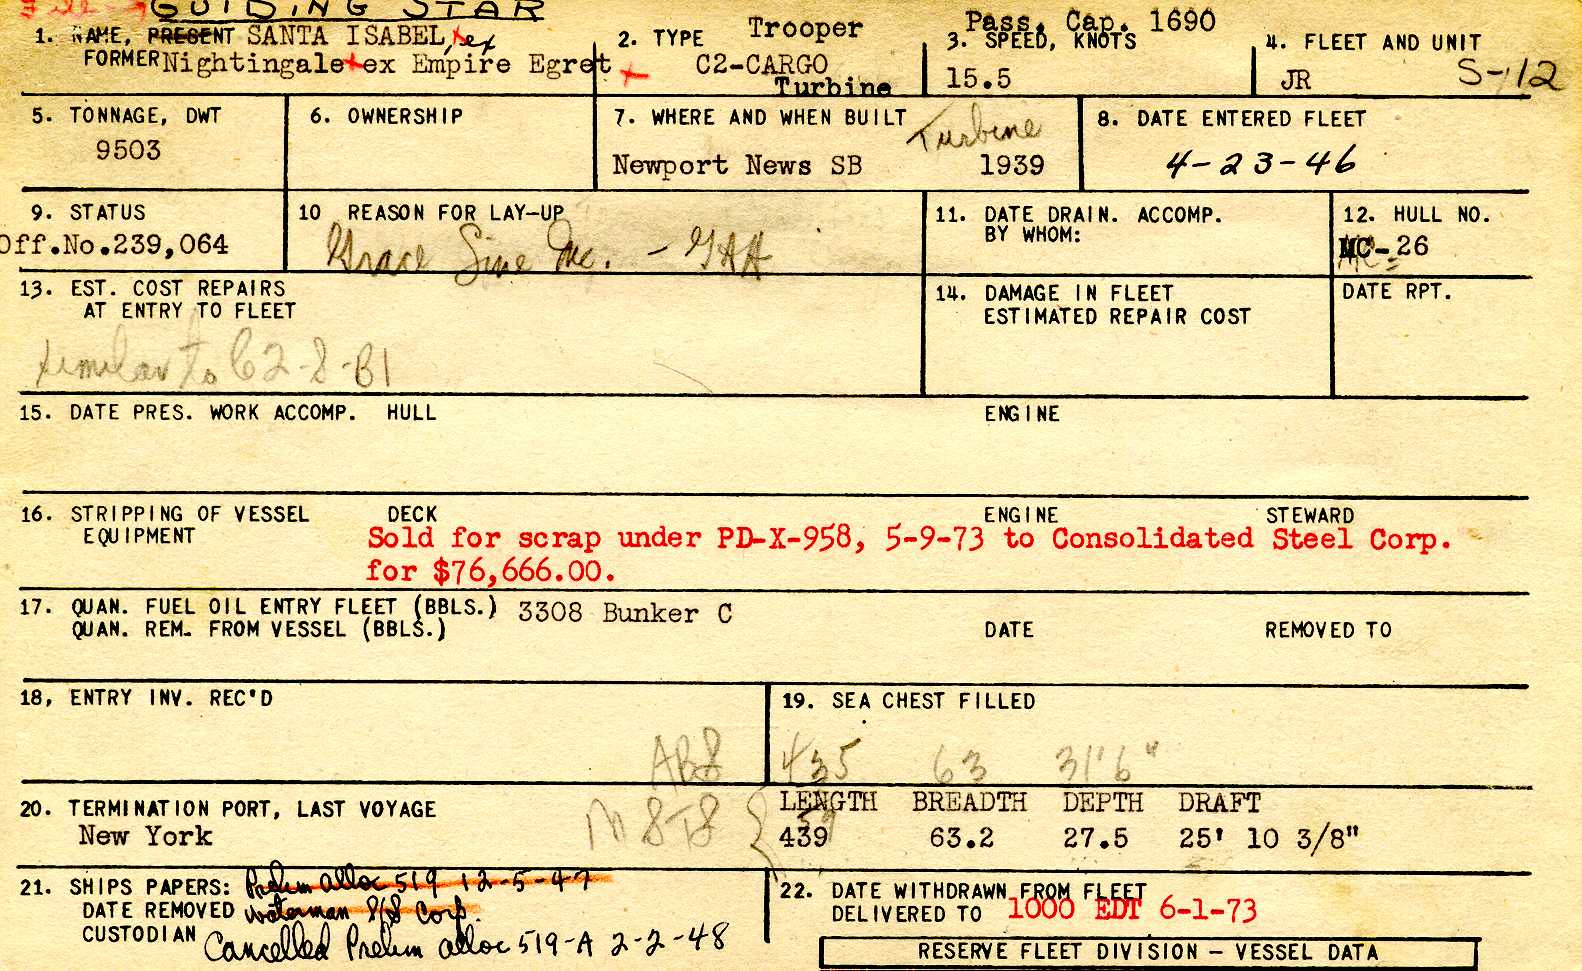 GUIDING STAR
1. NAME, PRESENT SANTA ISABEL, ex
FORMER Nightingale ex Empire Egret
2. TYPE Trooper
C2-CARGO
Turbine
Pass. Cap. 1690
3. SPEED, KNOTS
15.5
4. FLEET AND UNIT
JR S-12
5. TONNAGE, DWT
9503
6. OWNERSHIP
7. WHERE AND WHEN BUILT
Turbine
Newport News SB 1939
8. DATE ENTERED FLEET
4-23-46
9. STATUS
Off.No.239,064
10 REASON FOR LAY-UP
Grace Line Inc. - GAA
11. DATE DRAIN. ACCOMP.
BY WHOM:
12. HULL NO.
MC-26
13. EST. COST REPAIRS
AT ENTRY TO FLEET
similar to C2-S-B1
14. DAMAGE IN FLEET
ESTIMATED REPAIR COST
DATE RPT.
15. DATE PRES. WORK ACCOMP. HULL ENGINE
16. STRIPPING OF VESSEL DECK ENGINE STEWARD
EQUIPMENT
Sold for scrap under PD-X-958, 5-9-73 to Consolidated Steel Corp.
for $76,666.00.
17. QUAN. FUEL OIL ENTRY FLEET (BBLS.) 3308 Bunker C
QUAN. REM. FROM VESSEL (BBLS.) DATE REMOVED TO
18, ENTRY INV. REC'D
19. SEA CHEST FILLED
ABS 435 63 31'6"
20. TERMINATION PORT, LAST VOYAGE
New York
LENGTH BREADTH DEPTH DRAFT
439 63.2 27.5 25' 10 3/8"
21. SHIPS PAPERS: Prelim alloc 519 12-5-47
DATE REMOVED Waterman S/S Corp.
CUSTODIAN Cancelled Prelim alloc 519-A 2-2-48
22. DATE WITHDRAWN FROM FLEET
DELIVERED TO 1000 EDT 6-1-73
RESERVE FLEET DIVISION - VESSEL DATA